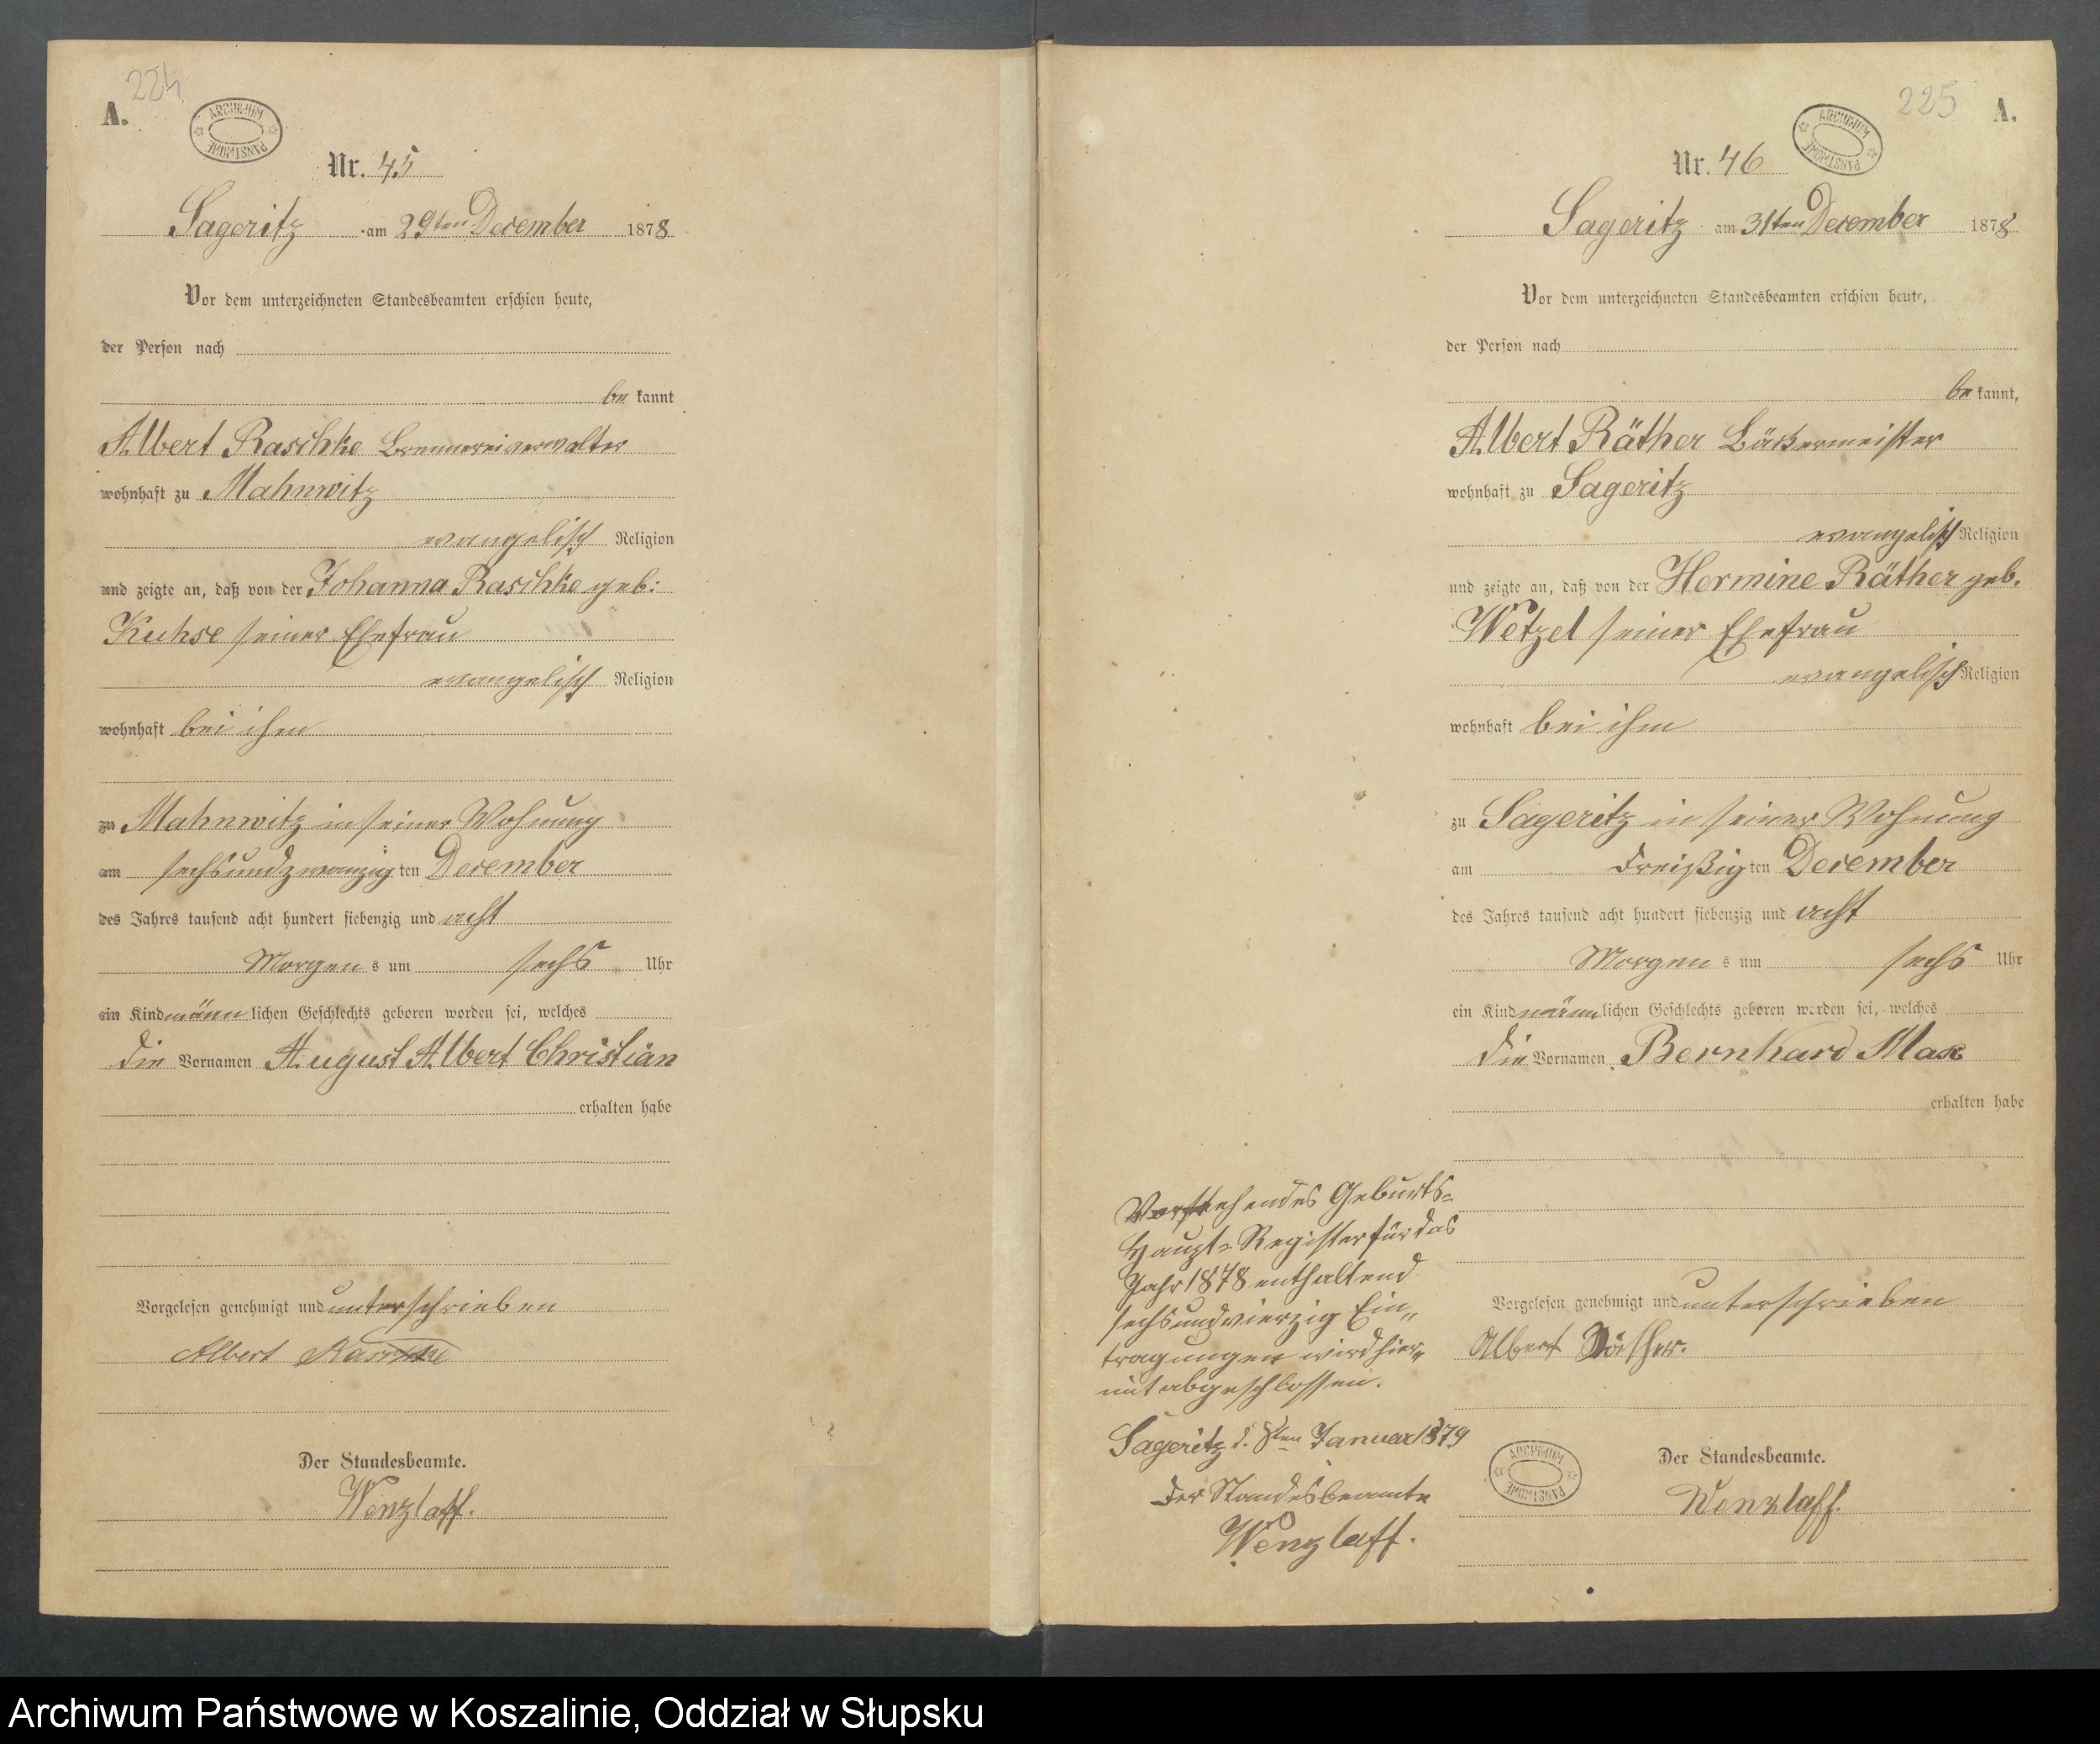 224
A.
ARCHIWUM PAŃSTWOWE
Nr. 45
Sageritz am 29ten December 1878
Vor dem unterzeichneten Standesbeamten erschien heute,
der Person nach
be kannt
Albert Raschke Brennereiverwalter
wohnhaft zu Mahnwitz
evangelisch Religion
und zeigte an, daß von der Johanna Raschke geb:
Kuhse seiner Ehefrau
evangelisch Religion
wohnhaft bei ihm
zu Mahnwitz in seiner Wohnung
am sechsundzwanzig ten December
des Jahres tausend acht hundert siebenzig und acht
Morgen s um sechs Uhr
ein Kind männ lichen Geschlechts geboren worden sei, welches
die Vornamen August Albert Christian
erhalten habe
Vorgelesen genehmigt und unterschrieben
Albert Raschke
Der Standesbeamte.
Wenzlaff.
225
A.
ARCHIWUM PAŃSTWOWE
Nr. 46
Sageritz am 31ten December 1878
Vor dem unterzeichneten Standesbeamten erschien heute,
der Person nach
be kannt,
Albert Räther Bäckermeister
wohnhaft zu Sageritz
evangelisch Religion
und zeigte an, daß von der Hermine Räther geb.
Wetzel seiner Ehefrau
evangelisch Religion
wohnhaft bei ihm
zu Sageritz in seiner Wohnung
am dreißig ten December
des Jahres tausend acht hundert siebenzig und acht
Morgen s um sechs Uhr
ein Kind männ lichen Geschlechts geboren worden sei, welches
die Vornamen Bernhard Max
erhalten habe
Vorgelesen genehmigt und unterschrieben
Albert Räther.
Der Standesbeamte.
Wenzlaff.
Vorstehendes Geburts-
Haupt-Register für das
Jahr 1878 enthaltend
sechsundvierzig Ein-
tragungen wird hier-
mit abgeschlossen.
Sageritz d. 8ten Januar 1879
Der Standesbeamte
Wenzlaff.
ARCHIWUM PAŃSTWOWE
Archiwum Państwowe w Koszalinie, Oddział w Słupsku